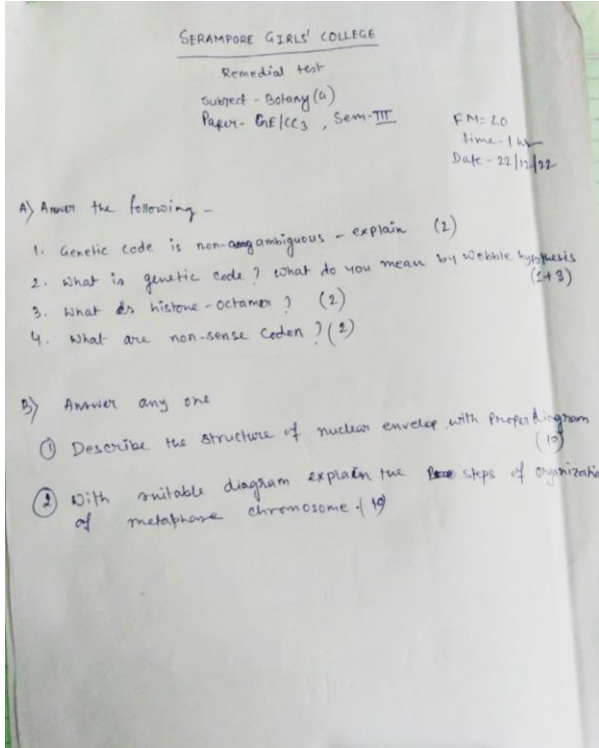 SERAMPORE GIRLS' COLLEGE
Remedial test
Subject - Botany (G)
Paper - GE/CC3, Sem-III
FM = 20
time - 1 hr
Date - 22/12/22
A) Answer the following -
1. Genetic code is non-ambiguous - explain (2)
2. What is genetic code? What do you mean by Webble hypothesis
(1+3)
3. What is histone-octamer? (2)
4. What are non-sense codon? (2)
B) Answer any one
① Describe the structure of nuclear envelop with proper diagram
(10)
② With suitable diagram explain the steps of organization
of metaphase chromosome. (10)